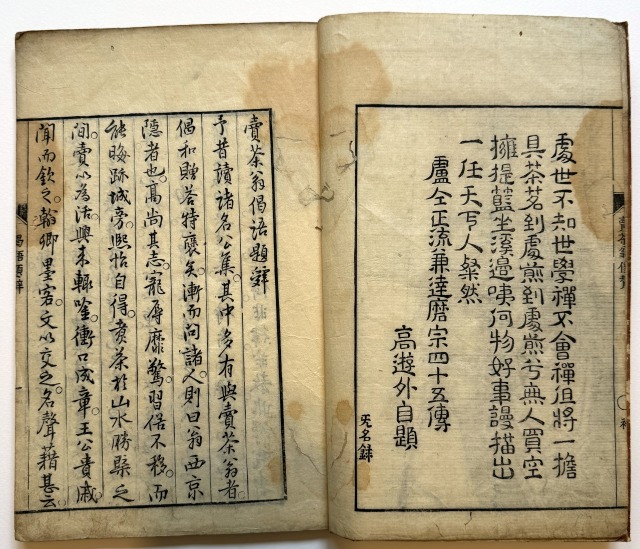 處世不知世學禪不會禪但將一擔
具茶茗到處煎到處煎兮無人買空
擁提籃坐溪邊咦何物好事謾描出
一任天下人粲然
盧仝正流兼達磨宗四十五傳
高遊外自題
賣茶翁偈語題辭
予昔讀諸名公集。其中多有與賣茶翁者。
偈和贈荅特褒矣。漸而問諸人。則曰翁西京
隱者也。高尚其志。寵辱靡驚。習俗不移。而
能晦跡城旁。熙怡自得。煮茶於山水勝槩之
間。賣以為活。興来輙唫。衝口成章。王公貴戚
聞而欽之。翰卿墨客。文以交之。名聲藉甚云